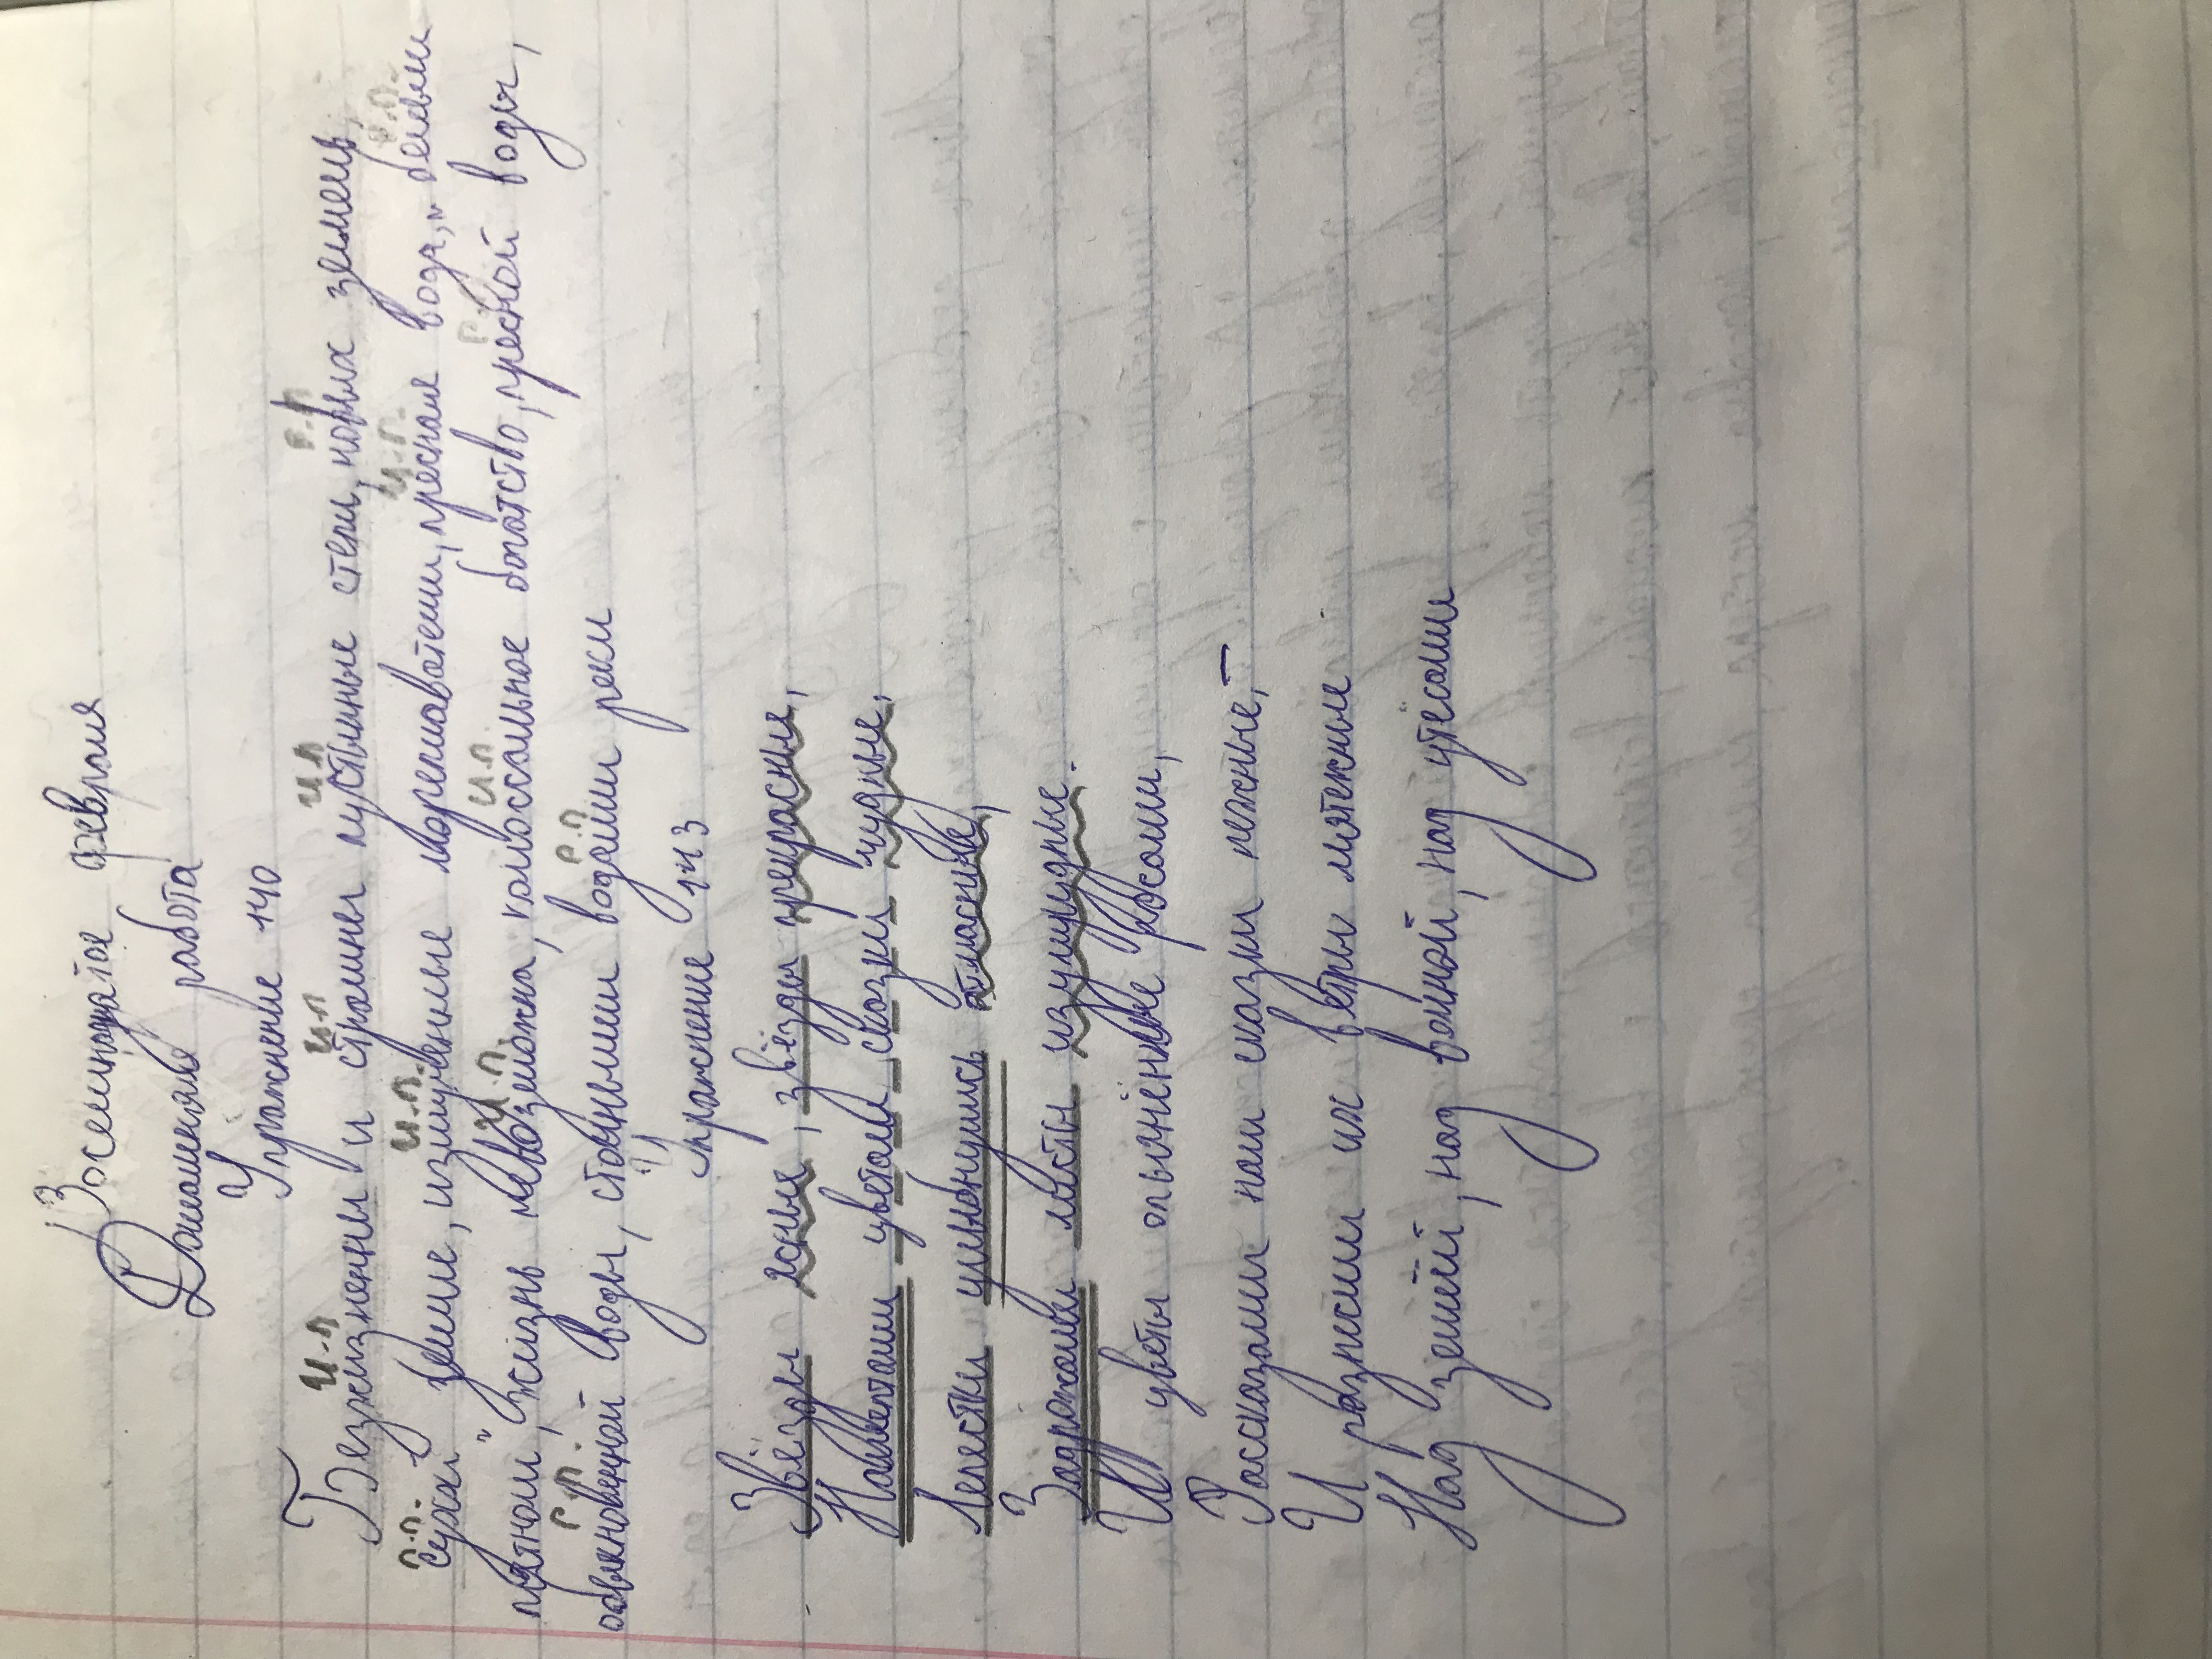 Восемнадцатое февраля
Домашняя работа
Упражнение 140
И.п И.п И.п Р.п
Безжизненны и страшны пустынные степи, новых земель,
Р.п. И.п. И.п. И.п.
сухая земле, изнурённые мореплаватели, пресная вода, „белым
И.п. И.п. Р.п.
пятном", жизнь невозможна, колоссальное богатство, пресной воды,
Р.п. Р.п
обыкновенной воды, сточными водами реки
Упражнение 143
Звёзды ясные, звёзды прекрасные,
Нашептали цветам сказки чудные,
Лепестки улыбнулись атласные,
Задрожали листы изумрудные.
И цветы опьянённые росами,
Рассказали нам сказки нежные, –
И разносили их ветры мятежные
Над землёй, над волной, над утёсами